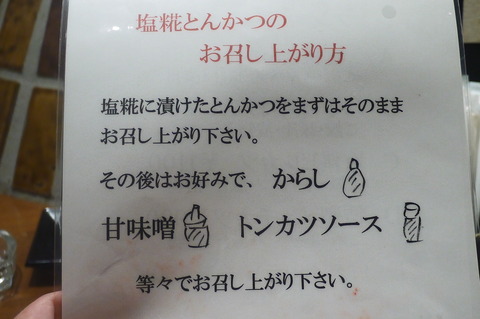 塩糀とんかつの
お召し上がり方
塩糀に漬けたとんかつをまずはそのまま
お召し上がり下さい。
その後はお好みで、からし
甘味噌 トンカツソース
等々でお召し上がり下さい。